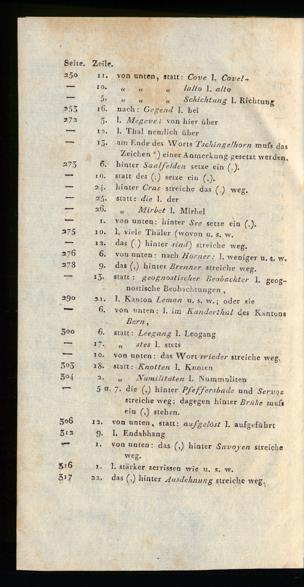 Seite. Zeile.
250 11. von unten, statt: Cove l. Covel-
— 10. „ „ „ lalto l. alto
— 5. „ „ „ Schichtung l. Richtung
253 16. nach: Gegend l. bei
272 3. l. Megeve; von hier über
— 12. l. Thal nemlich über
— 13. am Ende des Worts Tschingelhorn muſs das
Zeichen *) einer Anmerkung gesetzt werden.
273 6. hinter Saalfelden setze ein (,).
— 10. statt des (;) setze ein (,).
— 24. hinter Craz streiche das (,) weg.
— 25. statt: die l. der
— 26. „ Mirbet l. Mirbel
— 1. von unten: hinter See setze ein (,).
275 10. l. viele Thäler (wovon u. s. w.
— 12. das (,) hinter sind) streiche weg.
276 6. von unten: nach Horner: l. weniger u. s. w.
278 9. das (,) hinter Brenner streiche weg.
— 13. statt: geognostischer Beobachter l. geog-
nostische Beobachtungen,
290 21. l. Kanton Leman u. s. w.; oder sie
— 6. von unten: l. im Kanderthal des Kantons
Bern,
300 6. statt: Leegang l. Leogang
— 17. „ stes l. stets
— 10. von unten: das Wort wieder streiche weg.
303 18. statt: Knotten l. Knoten
304 2. „ Numilitäten l. Nummuliten
— 5 u. 7. die (,) hinter Pfeffersbade und Servoz
streiche weg; dagegen hinter Brühe muſs
ein (,) stehen.
306 12. von unten, statt: aufgelöst l. aufgeführt
312 9. l. Endabhang
— 1. von unten: das (,) hinter Savoyen streiche
weg.
316 1. l. stärker zerrissen wie u. s. w.
317 22. das (,) hinter Ausdehnung streiche weg.